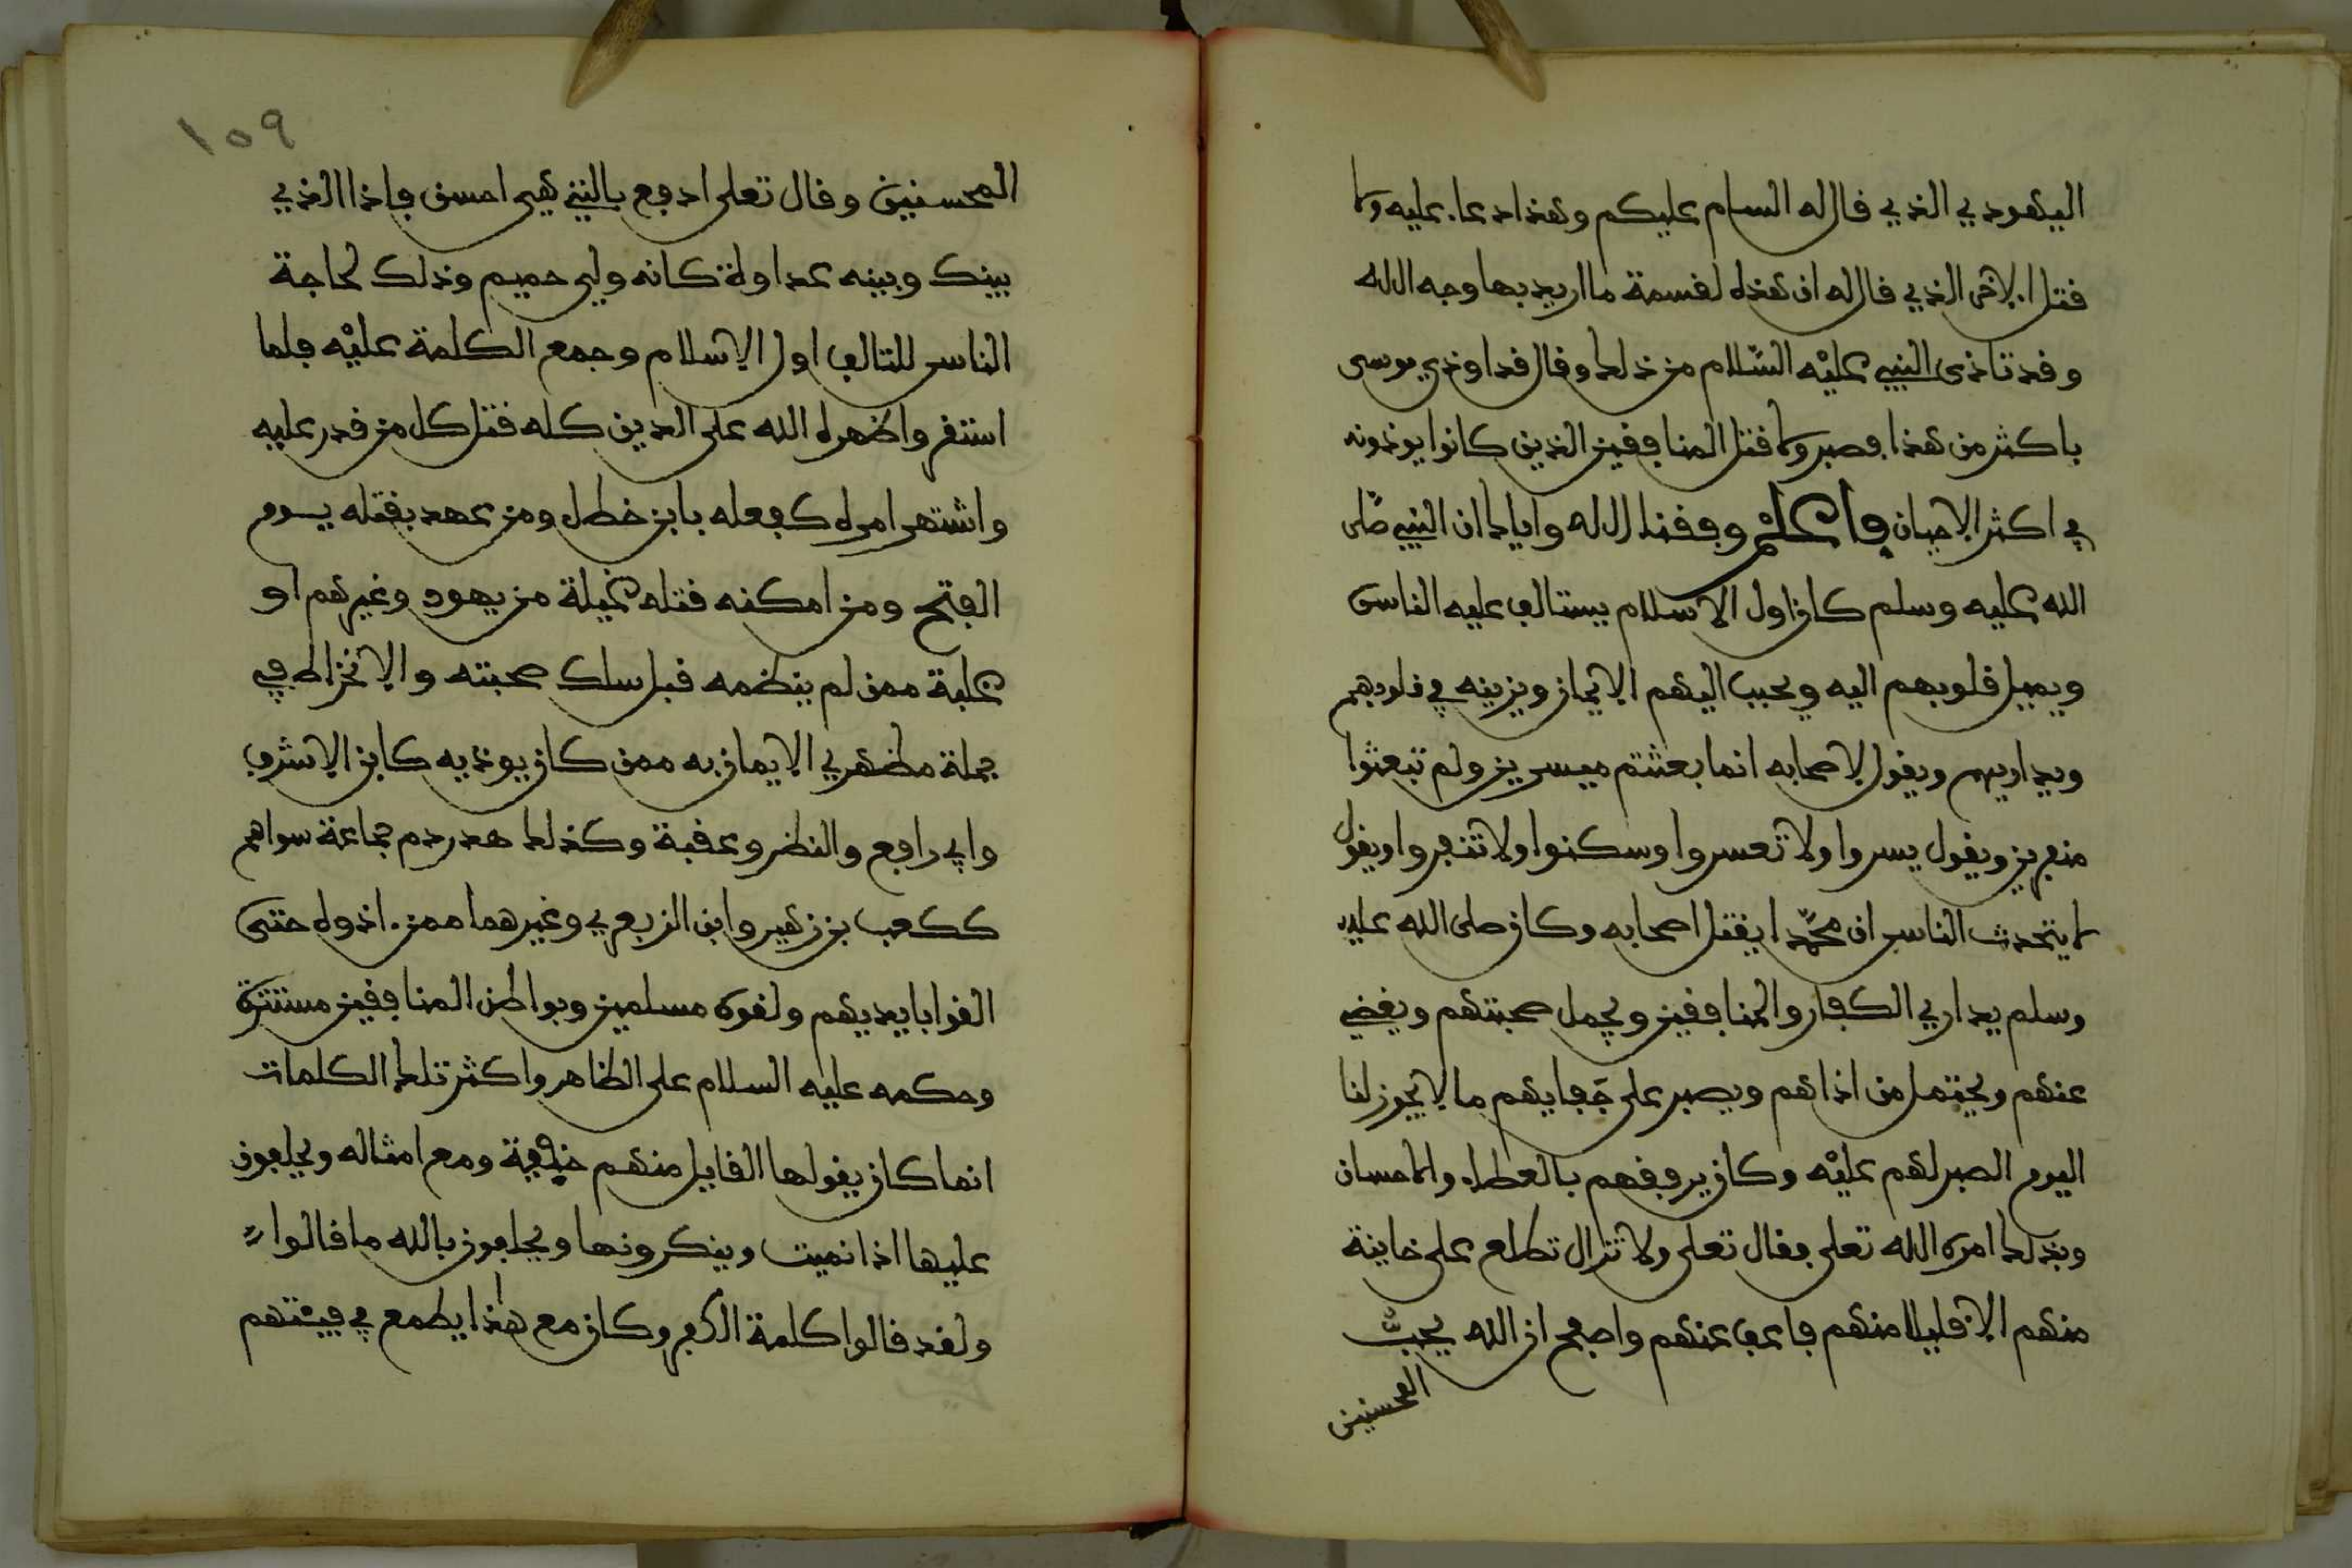 اليهودي الذي قال له السام عليكم وهذا دعاء عليه ولا
قتل الاخر الذي قال له ان هذه لقسمة ما اريد بها وجه الله
وقد تاذى النبي عليه السلام من ذلك وقال قد اوذي موسى
باكثر من هذا فصبر ولا قتل المنافقين الذين كانوا يوذونه
في اكثر الاحيان فاعلم وفقنا الله واياك ان النبي صلى
الله عليه وسلم كان اول الاسلام يستالف عليه الناس
ويميل قلوبهم اليه ويحبب اليهم الايمان ويزينه في قلوبهم
ويداريهم ويقول لاصحابه انما بعثتم ميسرين ولم تبعثوا
منفرين ويقول يسروا ولا تعسروا وسكنوا ولا تنفروا ويقول
لا يتحدث الناس ان محمدا يقتل اصحابه وكان صلى الله عليه
وسلم يداري الكفار والمنافقين ويجمل صحبتهم ويغضي
عنهم ويحتمل من اذاهم ويصبر على جفايهم ما لا يجوز لنا
اليوم الصبر لهم عليه وكان يرفقهم بالعطاء والاحسان
وبذلك امره الله تعلى فقال تعلى ولا تزال تطلع على خاينة
منهم الا قليلا منهم فاعف عنهم واصفح ان الله يحب
المحسنين
١٥٩
المحسنين وقال تعلى ادفع بالتي هي احسن فاذا الذي
بينك وبينه عداوة كانه ولي حميم وذلك لحاجة
الناس للتالف اول الاسلام وجمع الكلمة عليه فلما
استقر واظهره الله على الدين كله قتل كل من قدر عليه
واشتهر امره كفعله بابن خطل ومن عهد بقتله يوم
الفتح ومن امكنه قتله غيلة من يهود وغيرهم او
غلبة ممن لم ينظمه قبل سلك صحبته والانخراط في
جملة مظهري الايمان به ممن كان يوذيه كابن الاشرف
وابي رافع والنضر وعقبة وكذلك هدر دم جماعة سواهم
ككعب بن زهير وابن الزبعري وغيرهما ممن اذوه حتى
القوا بايديهم ولقوه مسلمين وبواطن المنافقين مستترة
وحكمه عليه السلام على الظاهر واكثر تلك الكلمات
انما كان يقولها القايل منهم خفية ومع امثاله ويحلفون
عليها اذا نميت وينكرونها ويحلفون بالله ما قالوا
ولقد قالوا كلمة الكفر وكان مع هذا يطمع في فيئتهم